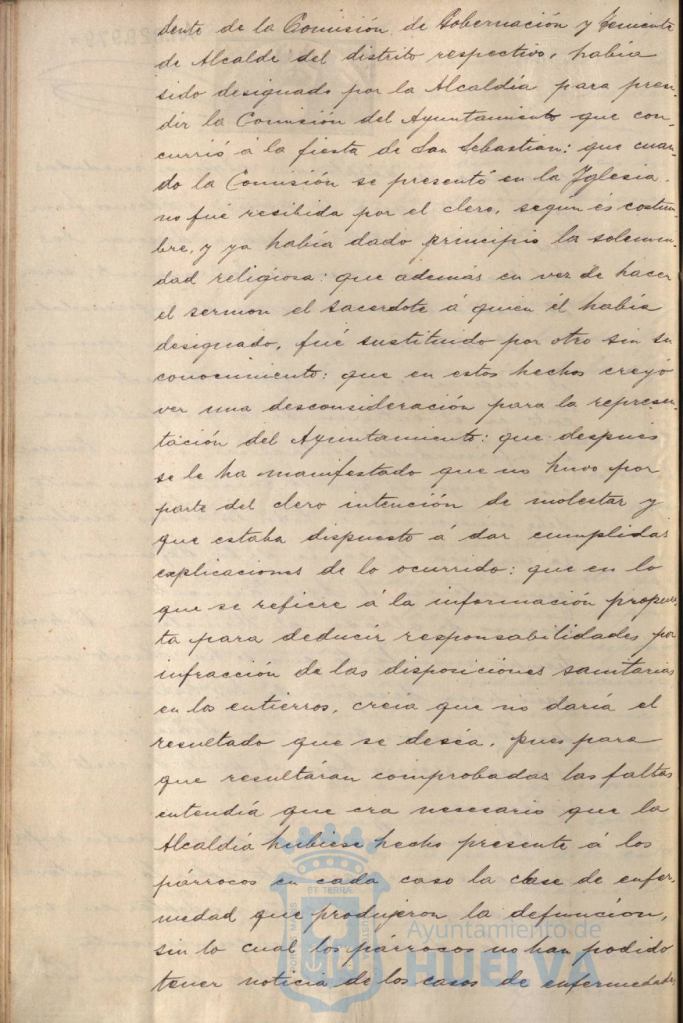 dente de la Comisión de Gobernación y teniente
de Alcalde del distrito respectivo, había
sido designado por la Alcaldía para presi-
dir la Comisión del Ayuntamiento que con-
currió á la fiesta de San Sebastian: que cuan-
do la Comisión se presentó en la Iglesia.
no fué resibida por el clero, según es costum-
bre, y ya había dado principio la solemni-
dad religiosa: que además en vez de hacer
el sermon el sacerdote á quien él había
designado, fué sustituido por otro sin su
conocimiento: que en estos hechos creyó
ver una desconsideración para la represen-
tación del Ayuntamiento: que después
se le ha manifestado que no huvo por
parte del clero intención de molestar y
que estaba dispuesto á dar cumplidas
explicaciones de lo ocurrido: que en lo
que se refiere á la información propues-
ta para deducir responsabilidades por
infracción de las disposiciones sanitarias
en los entierros, creia que no daría el
resultado que se deséa, pues para
que resultáran comprobadas las faltas
entendía que era necesario que la
Alcaldía hubiese hecho presente á los
párrocos en cada caso la clase de enfer-
medad que produjeron la defunción,
sin lo cual los párrocos no han podido
tener noticia de los casos de enfermedades
Ayuntamiento de
HUELVA